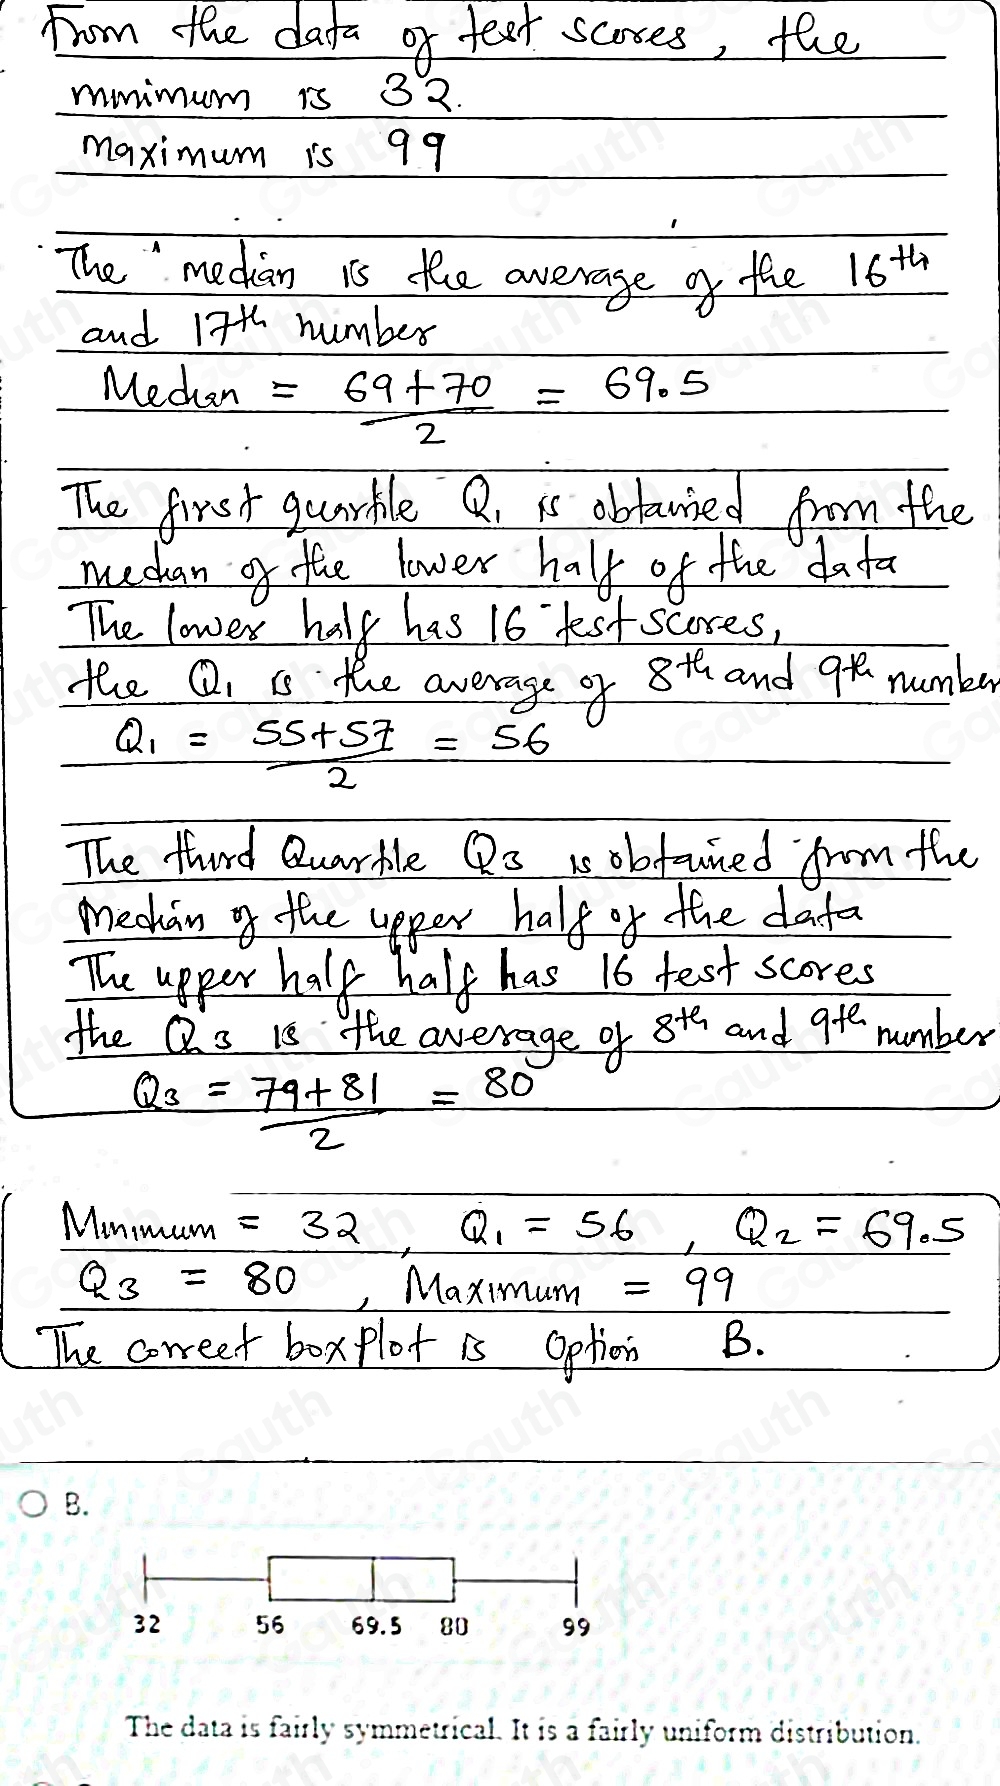 From the data of test scores, the
minimum is 32.
maximum is 99
The median is the average of the 16th
and 17th number
Median = 69+70/2 = 69.5
The first quartile Q1 is obtained from the
median of the lower half of the data
The lower half has 16 test scores,
the Q1 is the average of 8th and 9th number
Q1 = 55+57/2 = 56
The third Quartile Q3 is obtained from the
Median of the upper half of the data
The upper half half has 16 test scores
the Q3 is the average of 8th and 9th number
Q3 = 79+81/2 = 80
Minimum = 32, Q1 = 56, Q2 = 69.5
Q3 = 80, Maximum = 99
The correct boxplot is Option B.
B.
32 56 69.5 80 99
The data is fairly symmetrical. It is a fairly uniform distribution.